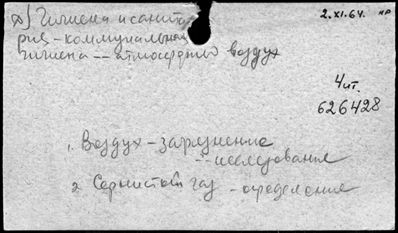 2.XI.64. нр
х) Гигиена и санита
рия - коммунальная
гигиена -- атмосферный воздух
4 чт.
626428
1. Воздух - загрязнение
-- исследование
2. Сернистый газ - определение